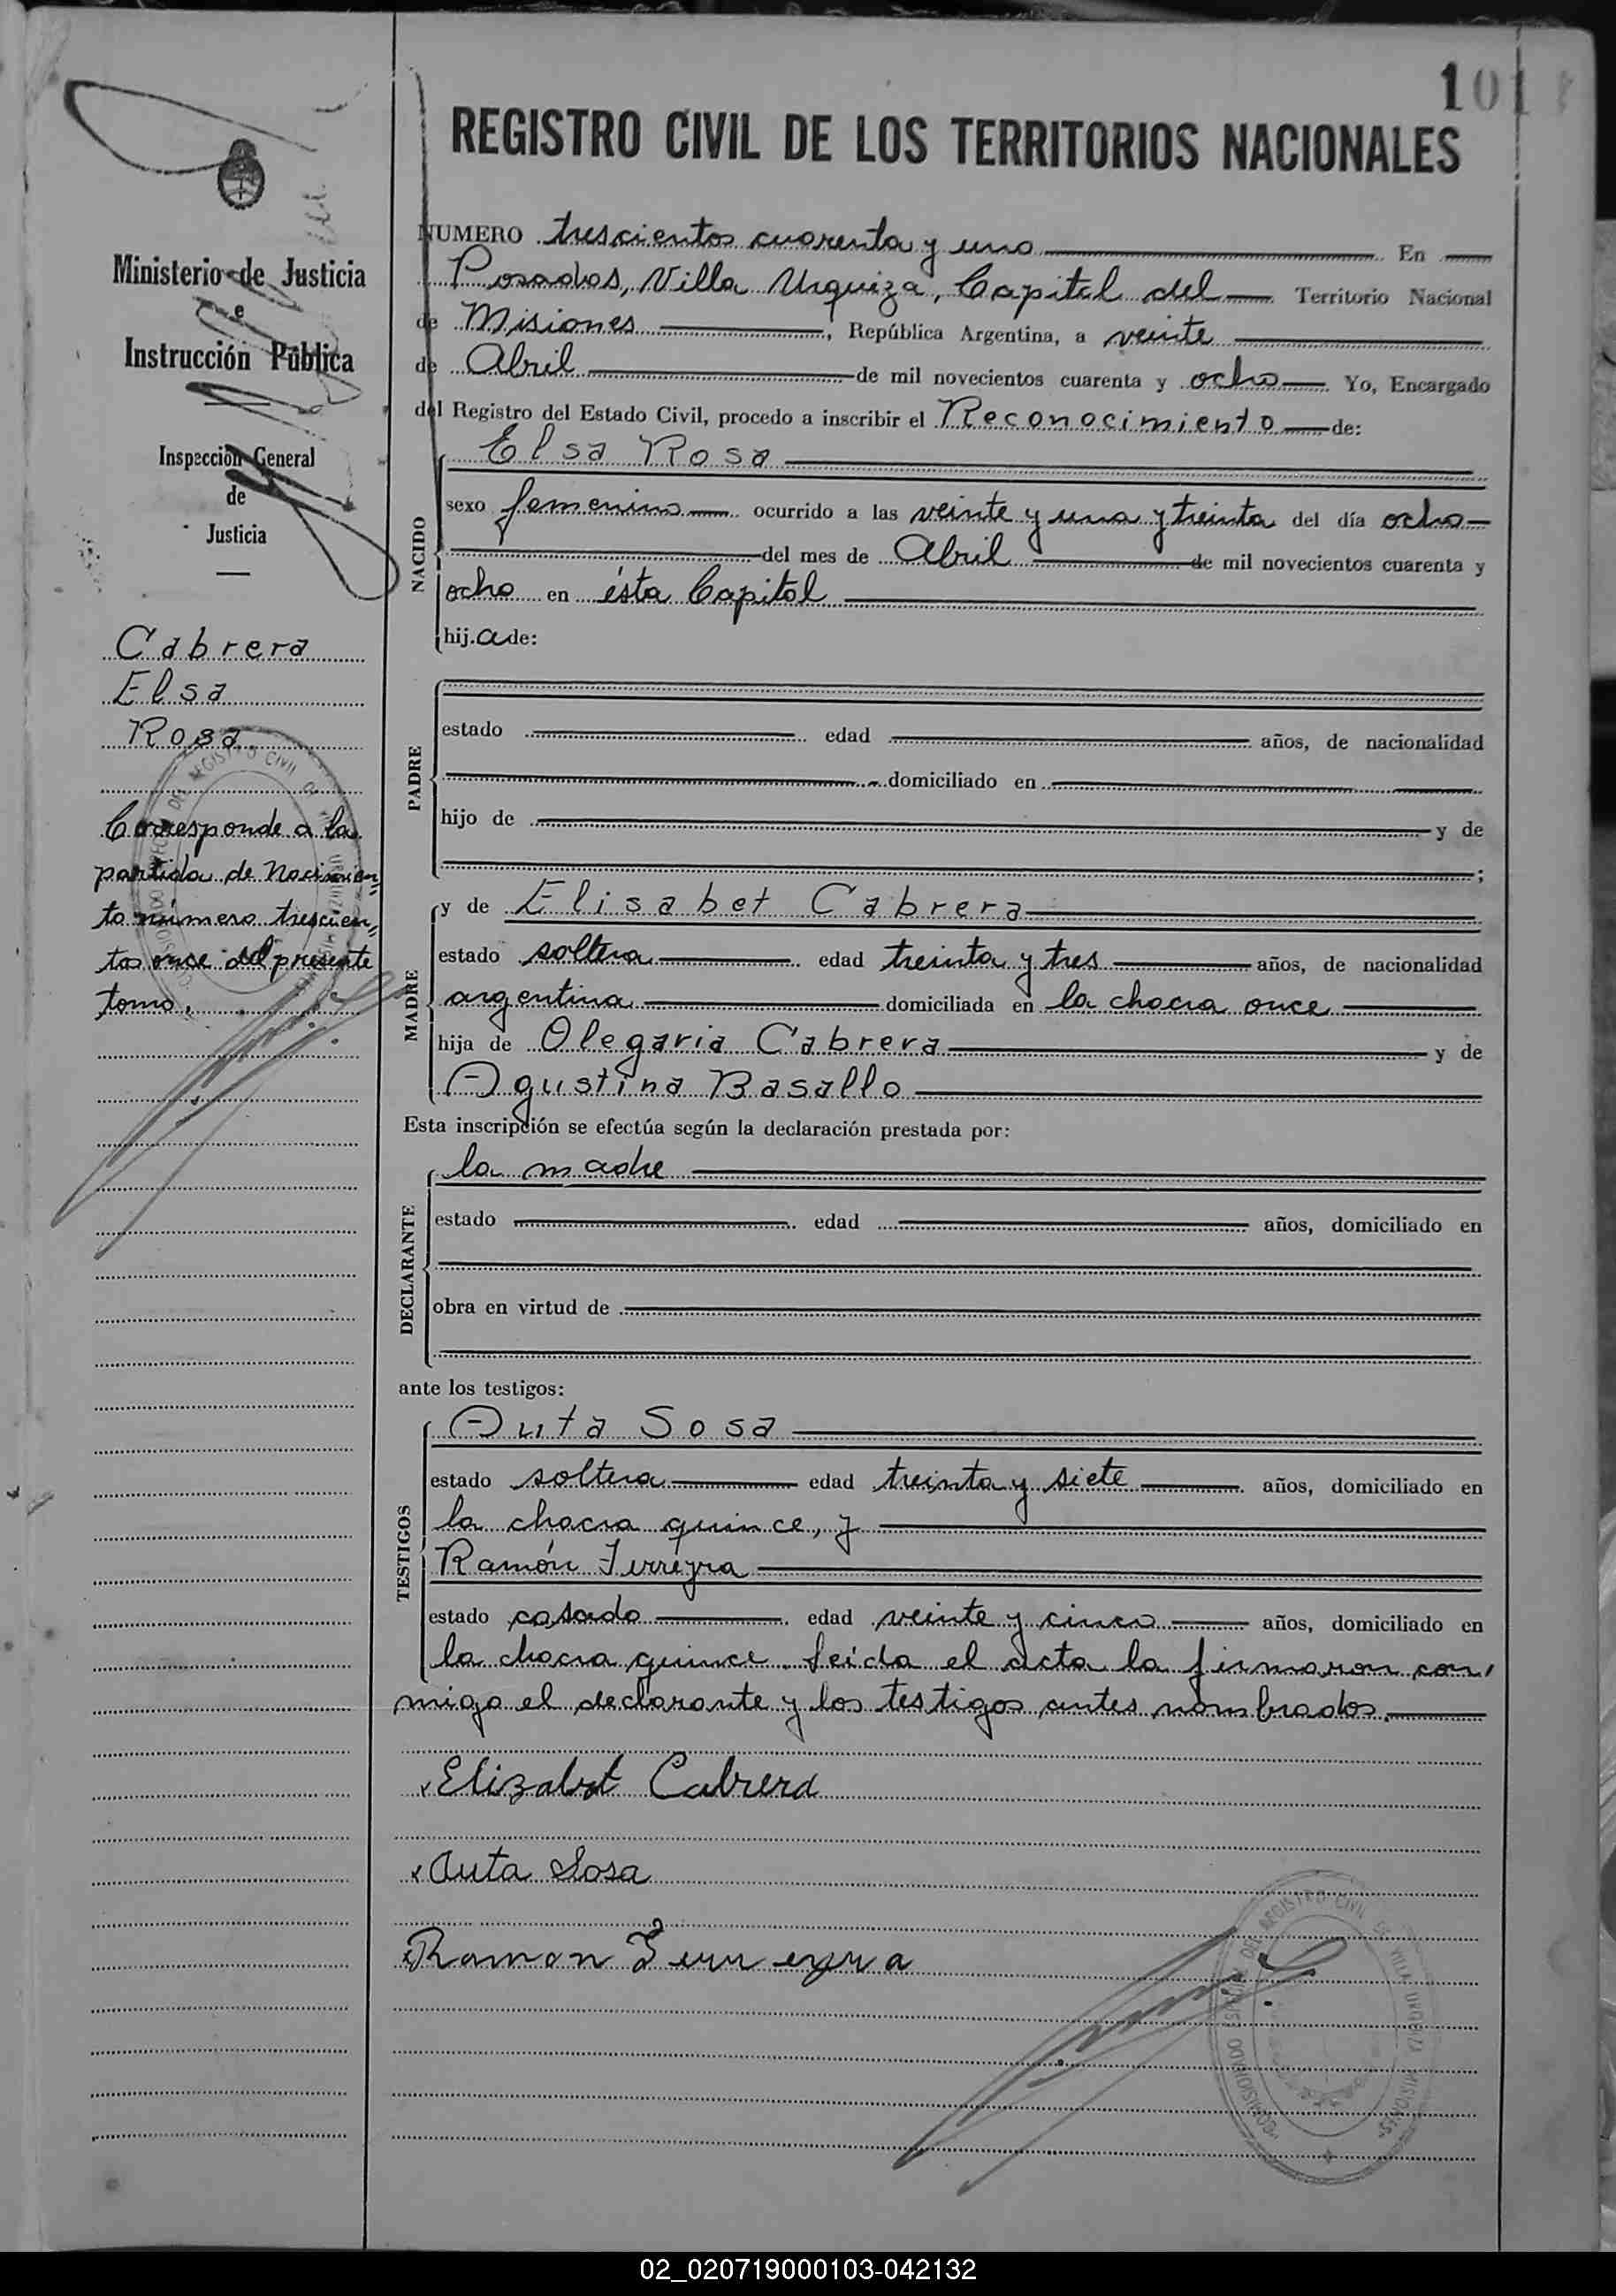 101
REGISTRO CIVIL DE LOS TERRITORIOS NACIONALES
Ministerio de Justicia
e
Instrucción Pública
Inspección General
de
Justicia
Cabrera
Elsa
Rosa
Corresponde a la
partida de Nacimien„
to número trescien„
tos once del presente
tomo.
NUMERO trescientos cuarenta y uno En
Posadas, Villa Urquiza, Capital del Territorio Nacional
de Misiones, República Argentina, a veinte
de Abril de mil novecientos cuarenta y ocho Yo, Encargado
del Registro del Estado Civil, procedo a inscribir el Reconocimiento de:
NACIDO
Elsa Rosa
sexo femenino ocurrido a las veinte y una y treinta del día ocho
del mes de Abril de mil novecientos cuarenta y
ocho en ésta Capital
hij.a de:
PADRE
estado edad años, de nacionalidad
domiciliado en
hijo de y de
;
MADRE
y de Elisabet Cabrera
estado soltera edad treinta y tres años, de nacionalidad
argentina domiciliada en la chacra once
hija de Olegaria Cabrera y de
Agustina Basallo
Esta inscripción se efectúa según la declaración prestada por:
DECLARANTE
la madre
estado edad años, domiciliado en
obra en virtud de
ante los testigos:
TESTIGOS
Auta Sosa
estado soltera edad treinta y siete años, domiciliado en
la chacra quince, y
Ramón Ferreyra
estado casado edad veinte y cinco años, domiciliado en
la chacra quince. Leída el acta la firmaron con,
migo el declarante y los testigos antes nombrados.
Elizabet Cabrera
Auta Sosa
Ramon Ferreyra
02_020719000103-042132